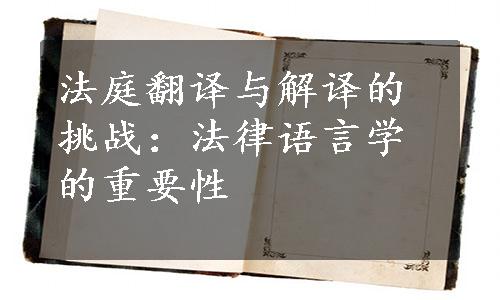 法庭翻译与解译的
挑战：法律语言学
的重要性